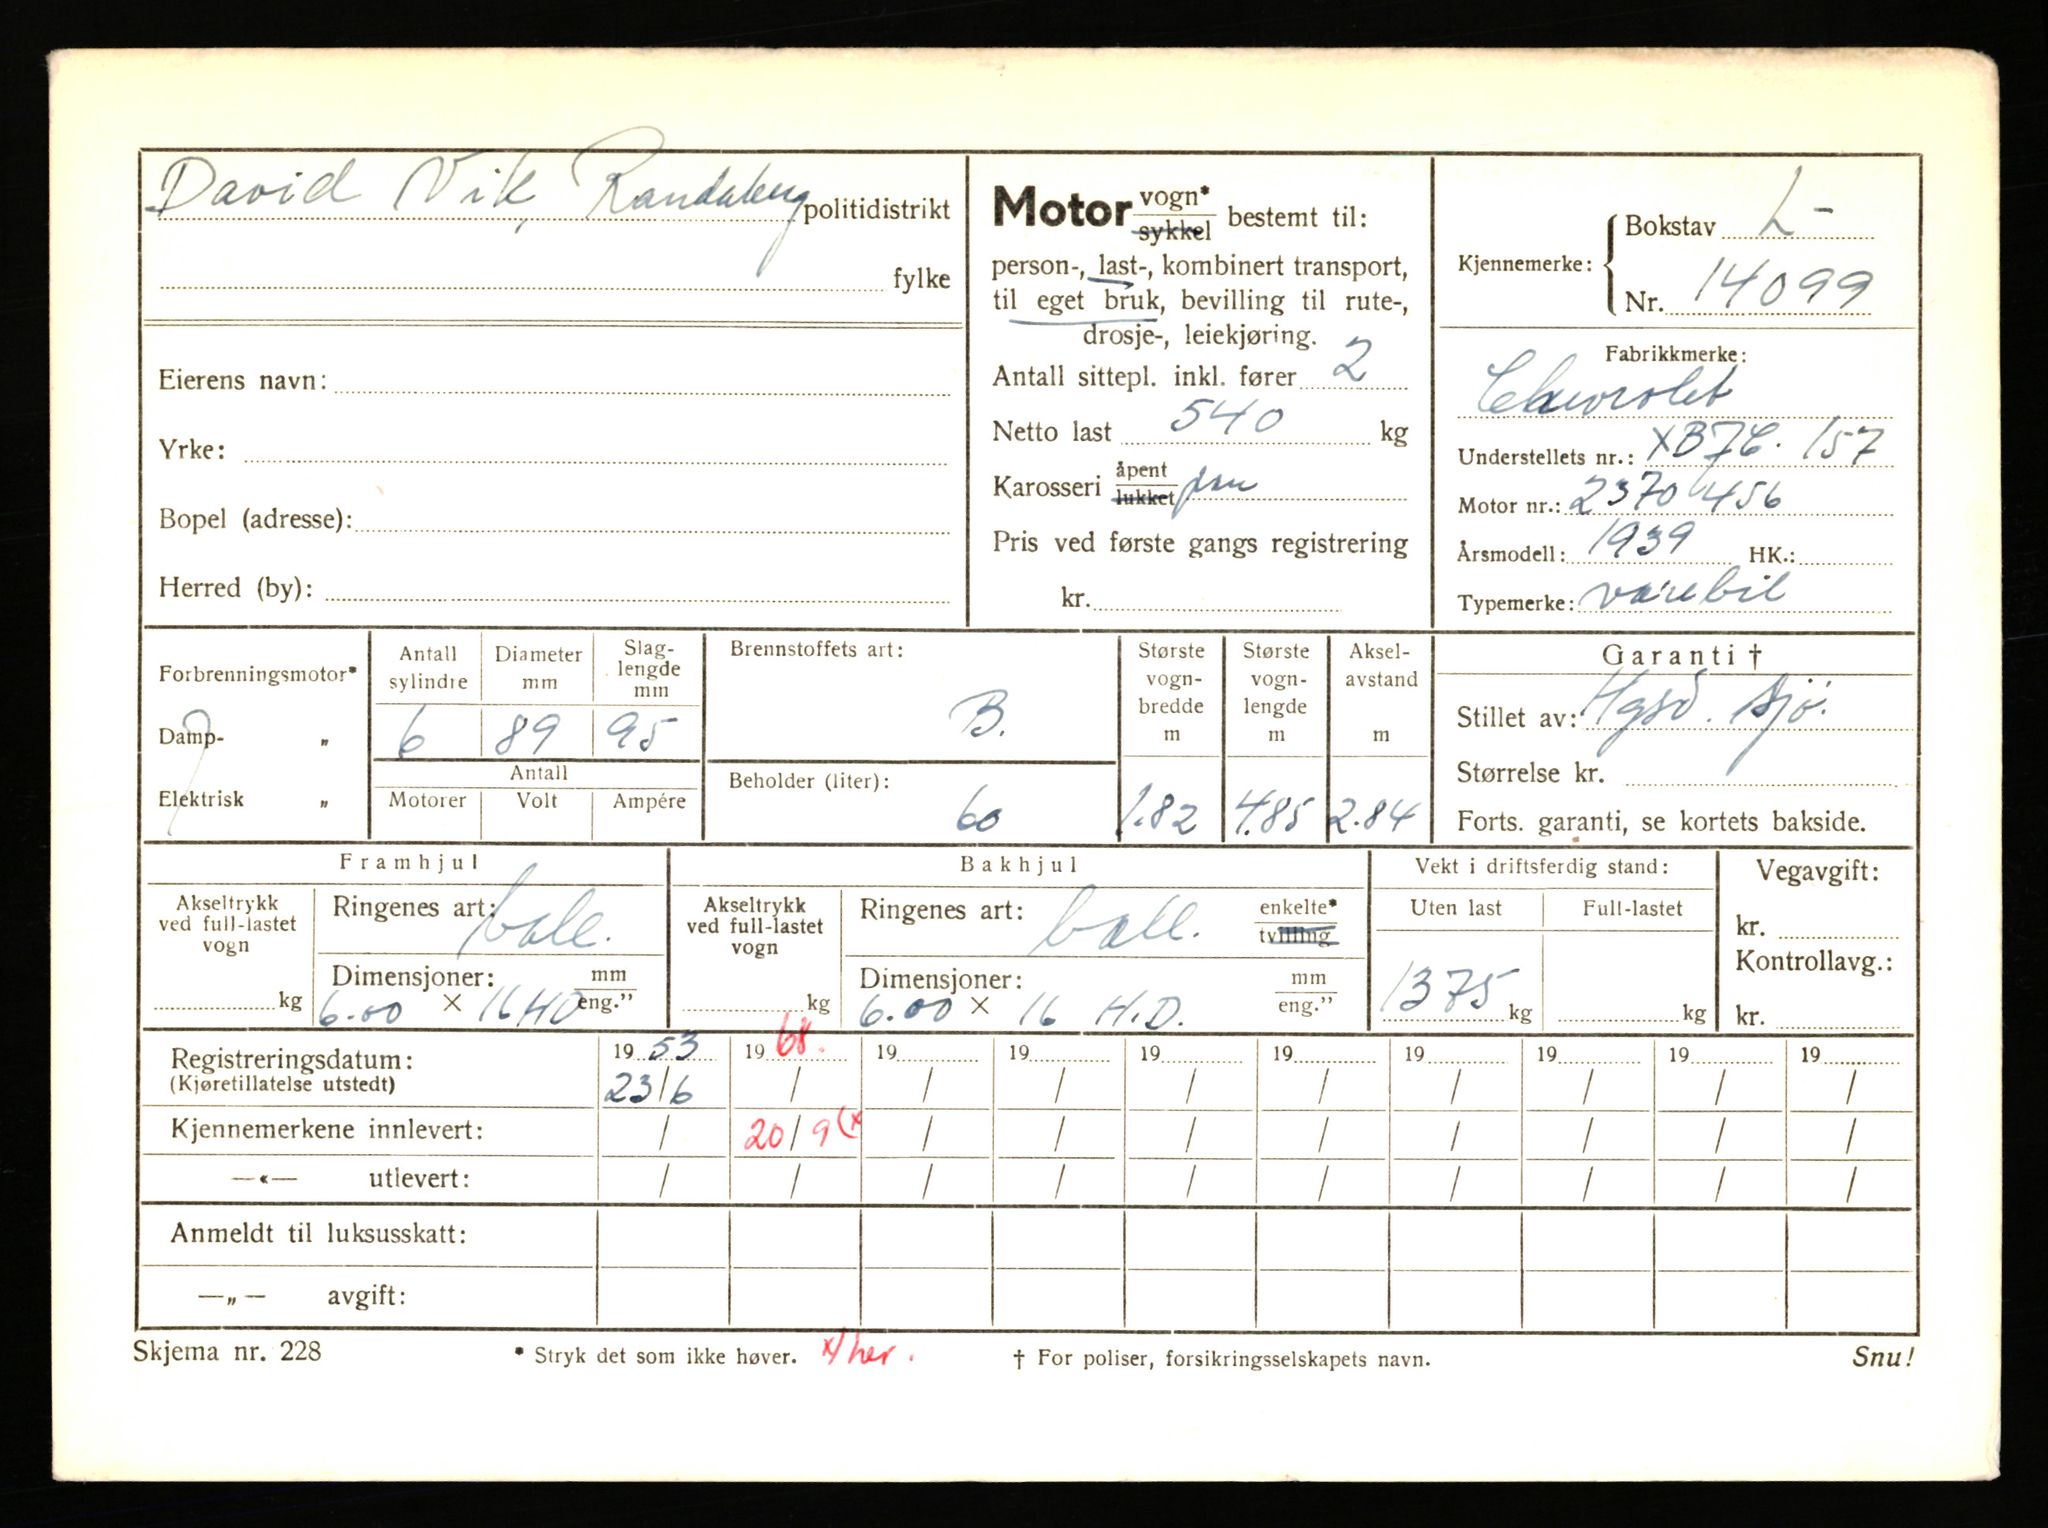 David Vik, Randaberg politidistrikt
fylke
Eierens navn:
Yrke:
Bopel (adresse):
Herred (by):
Motor vogn* sykkel bestemt til:
person-, last-, kombinert transport,
til eget bruk, bevilling til rute-,
drosje-, leiekjøring.
Antall sittepl. inkl. fører 2
Netto last 540 kg
Karosseri åpent lukket
Pris ved første gangs registrering
kr.
Kjennemerke: Bokstav L-
Nr. 14099
Fabrikkmerke:
Chevrolet
Understellets nr.: XB7C. 157
Motor nr.: 2370456
Årsmodell: 1939 HK.:
Typemerke: varebil
Forbrenningsmotor*
Damp- „
Elektrisk „
Antall sylindre
Diameter mm
Slag-lengde mm
6 89 95
Antall
Motorer Volt Ampére
Brennstoffets art:
B.
Beholder (liter):
60
Største vogn-bredde m
1.82
Største vogn-lengde m
4.85
Aksel-avstand m
2.84
Garanti †
Stillet av: Hgsd. sjø.
Størrelse kr.
Forts. garanti, se kortets bakside.
Framhjul
Akseltrykk ved full-lastet vogn
kg
Ringenes art: ball.
Dimensjoner: mm eng."
6.00 × 16 HD
Bakhjul
Akseltrykk ved full-lastet vogn
kg
Ringenes art: ball. enkelte* tvilling
Dimensjoner: mm eng."
6.00 × 16 H.D.
Vekt i driftsferdig stand:
Uten last Full-lastet
1375 kg kg
Vegavgift:
kr.
Kontrollavg.:
kr.
Registreringsdatum: 19 53 19 68. 19 19 19 19 19 19 19 19
(Kjøretillatelse utstedt) 23/6 / / / / / / / / /
Kjennemerkene innlevert: / 20/9 (x / / / / / / / /
—«— utlevert: / / / / / / / / / /
Anmeldt til luksusskatt:
—„— avgift:
Skjema nr. 228 * Stryk det som ikke høver. x/ her. † For poliser, forsikringsselskapets navn. Snu!